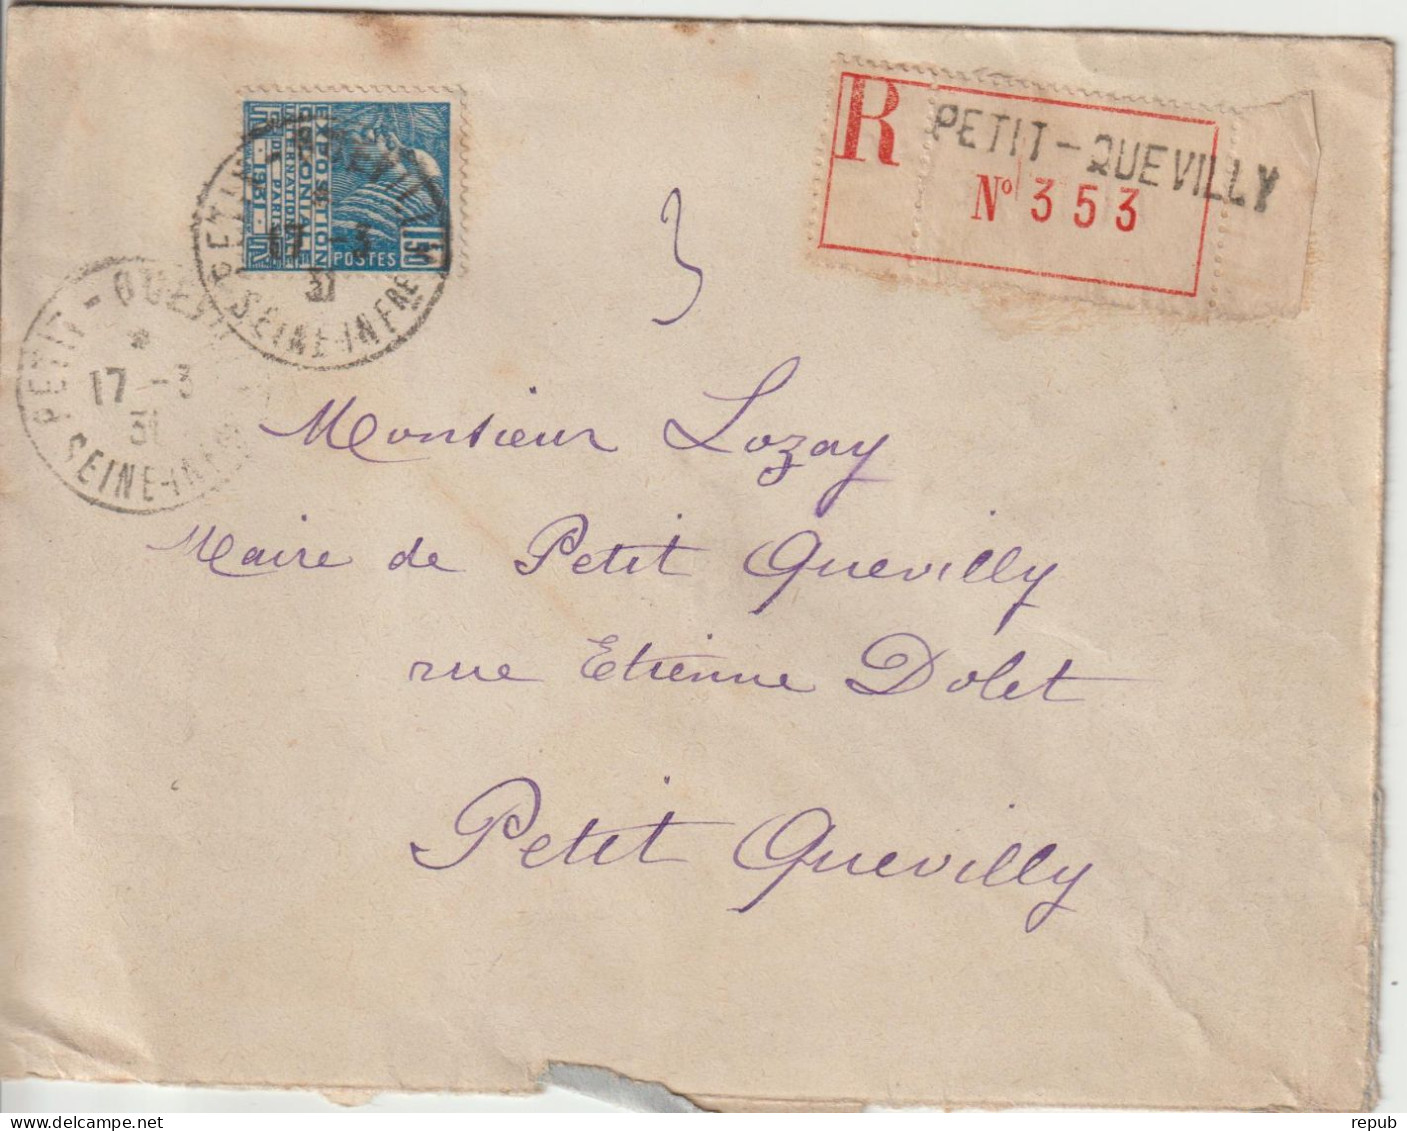 R PETIT-QUEVILLY
Nº 353
EXPOSITION
COLONIALE
INTERNATIONALE
DE PARIS
1931
POSTES
1F50
PETIT-QUEVILLY
17 -3
31
SEINE-INFRE
PETIT-QUEVILLY
*
17 -3
31
SEINE-INFRE
3
Monsieur Lozay
Maire de Petit Quevilly
rue Etienne Dolet
Petit Quevilly
repub